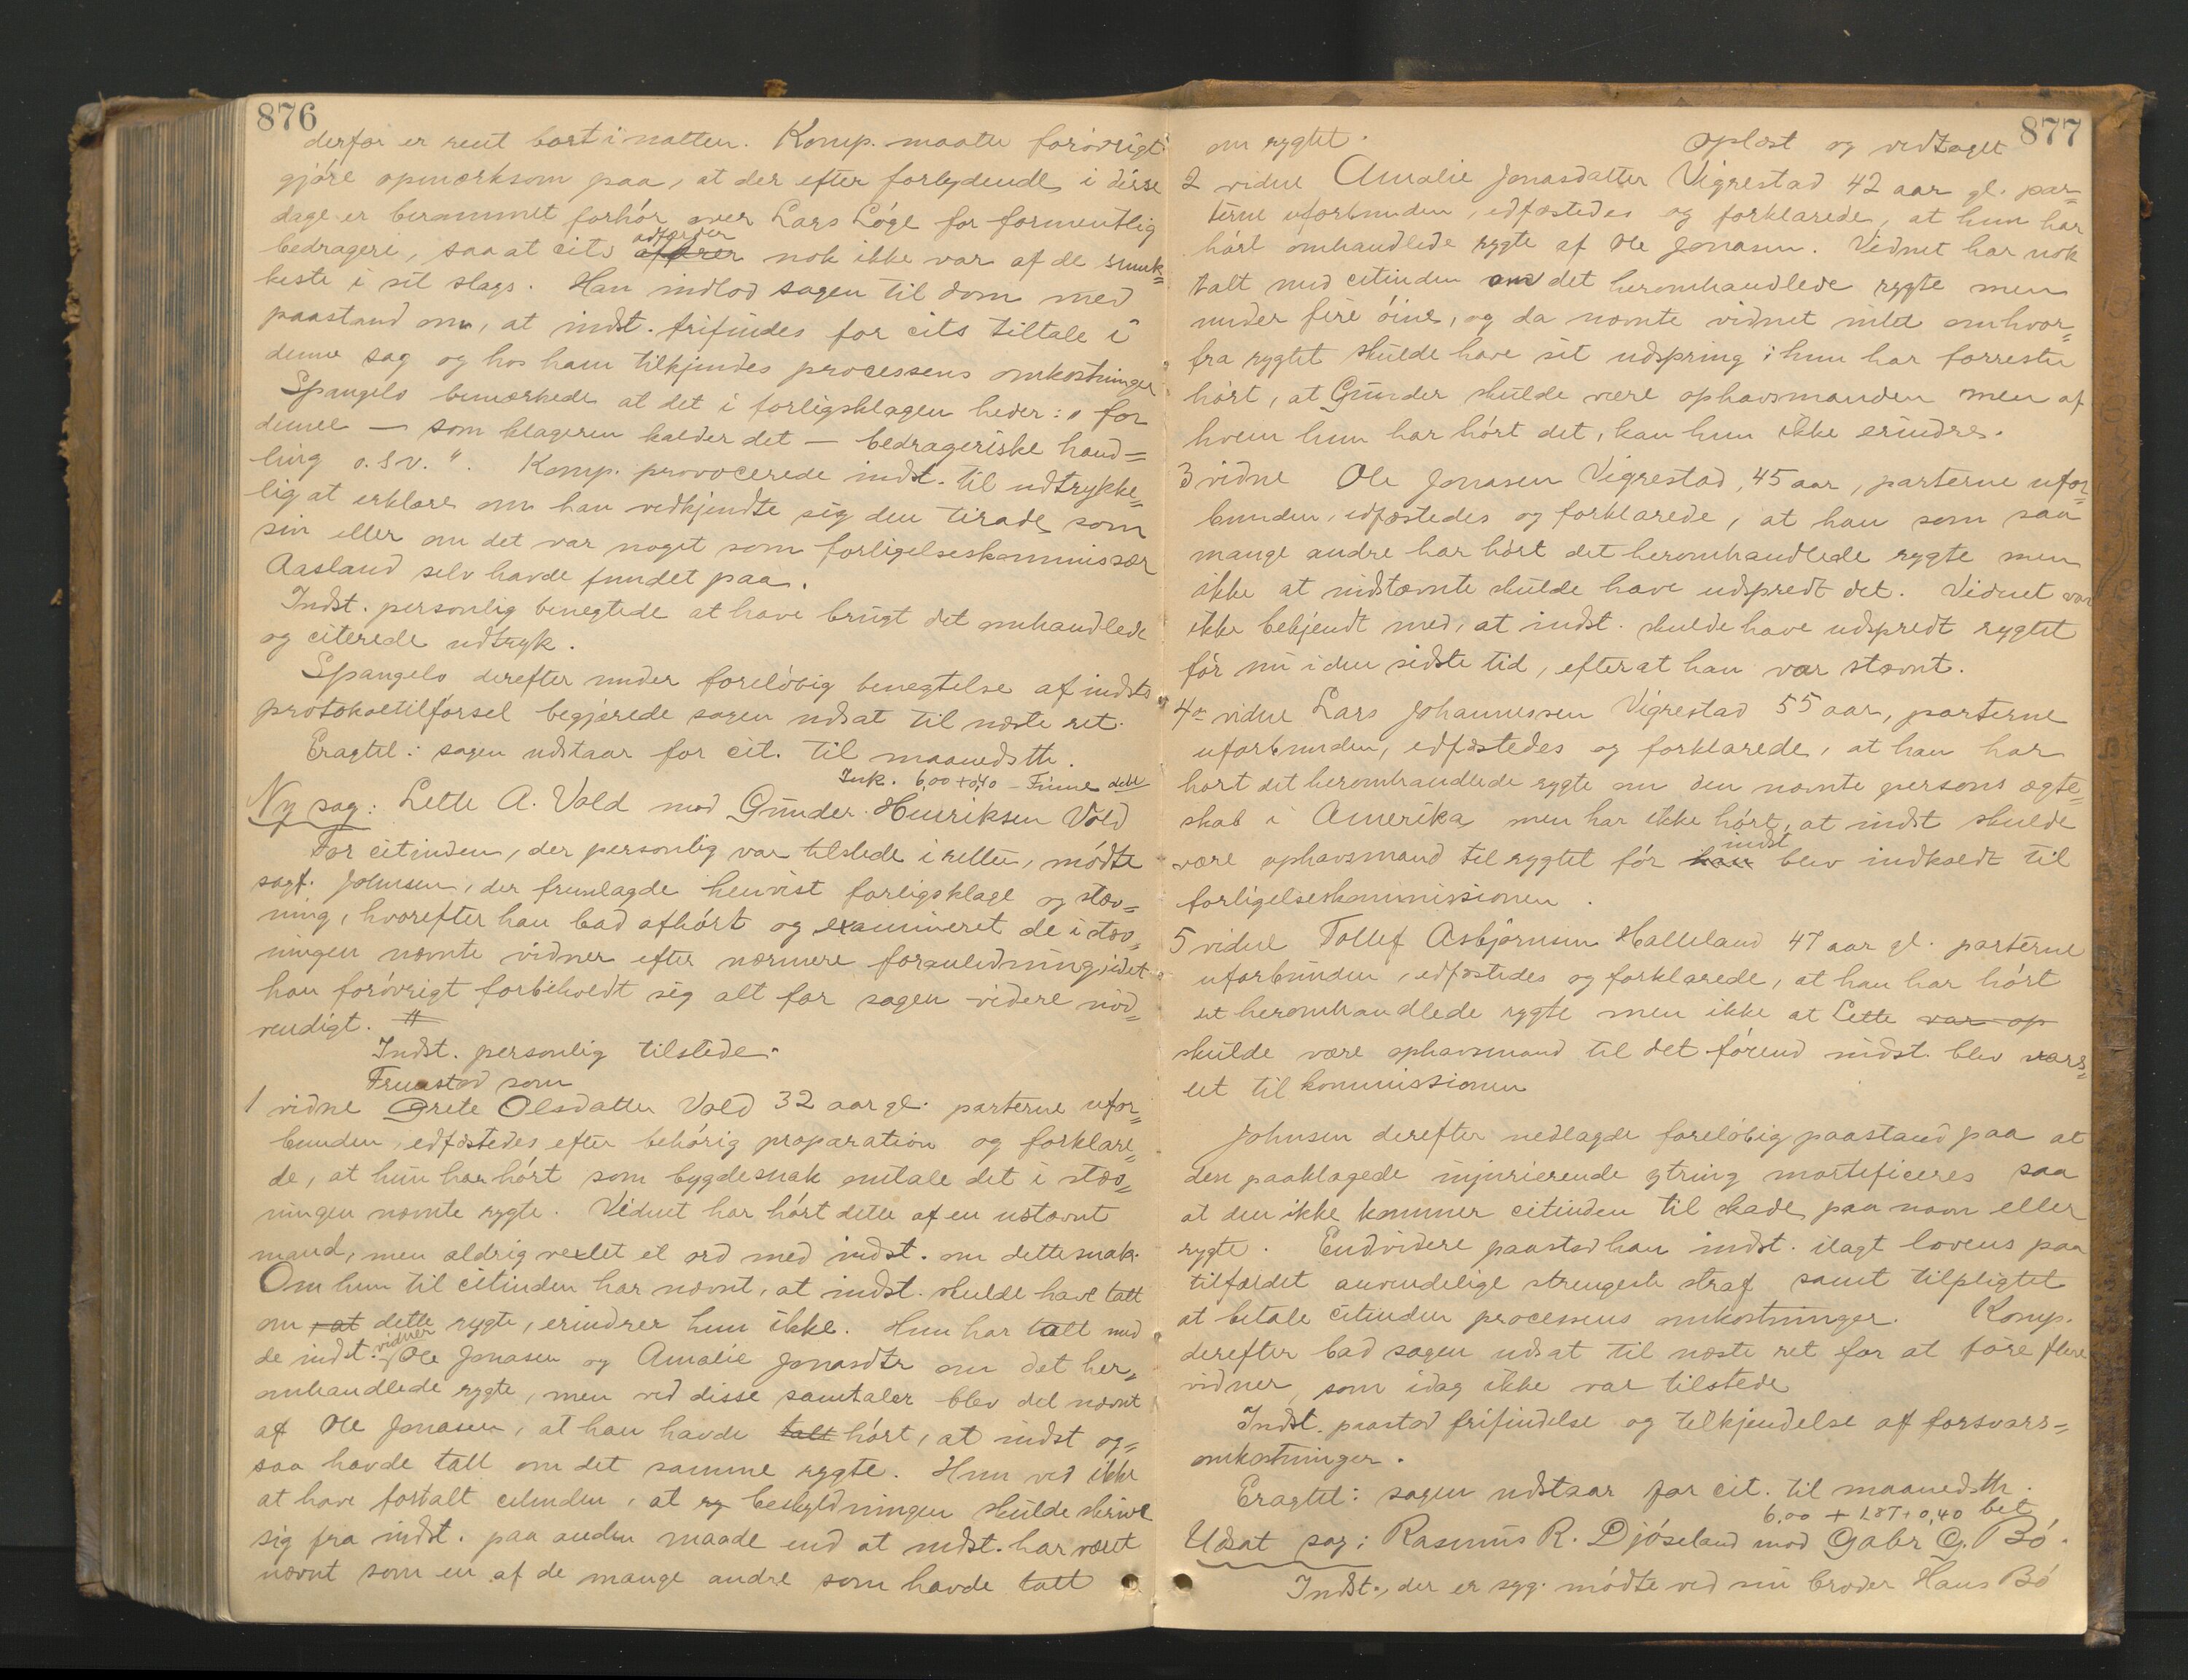 876
derfor er reist bort i natten. Komp. maatte forøvrigt
gjøre opmærksom paa, at der efter forlydende i disse
dage er berammet forhør over Lars Løge for formentlig
bedrageri, saa at cits adfærder nok ikke var af de smuk=
keste i sit slags. Han indlod sagen til dom med
paastand om, at indst. frifindes for cits tiltale i
denne sag og hos ham tilkjendes processens omkostninger
Spangelo bemærkede at det i forligsklagen heder: "for
denne — som klageren kalder det — bedrageriske hand=
ling o.s.v.". Komp. provocerede indst. til udtrykke=
lig at erklære om han vedkjendte sig den tirade som
sin eller om det var noget som forligelseskommissær
Aasland selv havde fundet paa.
Indst. personlig benegtede at have brugt det omhandlede
og citerede udtryk.
Spangelo derefter under foreløbig benegtelse af indsts
protokoltilførsel begjærede sagen udsat til næste ret.
Eragtet: sagen udstaar for cit. til maanedsth.
Ink. 6,00 + 0,40 -
Ny sag: Lette A. Vold mod Gunder Henriksen Vold
For citinden, der personlig var tilstede i retten, mødte
sagf. Johnsen, der fremlagde henvist forligsklage og stæv=
ning, hvorefter han bad afhørt og examineret de i stæv=
ningen nævnte vidner efter nærmere foranledning, idet
han forøvrigt forbeholdt sig alt for sagen videre nød=
vendigt. #
Indst. personlig tilstede.
Fremstod som
1 vidne Grete Olsdatter Vold 32 aar gl. parterne ufor=
bunden, edfæstedes efter behørig præparation og forklare=
de, at hun har hørt som bygdesnak omtale det i stæv=
ningen nævnte rygte. Vidnet har hørt dette af en ustævnt
mand, men aldrig vexlet et ord med indst. om dette snak.
Om hun til citinden har nævnt, at indst. skulde have talt
om, at dette rygte, erindrer hun ikke. Hun har talt med
de indst. vidner Ole Jonasen og Amalie Jonasdtr om det her=
omhandlede rygte, men ved disse samtaler blev det nævnt
af Ole Jonasen, at han havde talt hørt, at indst og=
saa havde talt om det samme rygte. Hun ved ikke
at have fortalt citinden, at ry beskyldningen skulde skrive
sig fra indst. paa anden maade end at indst. har været
nævnt som en af de mange andre som havde talt
877
om rygtet. Oplæst og vedtaget
2 vidne Amalie Jonasdatter Vigrestad 42 aar gl. par=
terne uforbunden, edfæstedes og forklarede, at hun har
hørt omhandlede rygte af Ole Jonasen. Vidnet har nok
talt med citinden om det heromhandlede rygte men
under fire øine, og da nævnte vidnet intet om hvor=
fra rygtet skulde have sit udspring; hun har forresten
hørt, at Gunder skulde være ophavsmanden men af
hvem hun har hørt det, kan hun ikke erindre.
3 vidne Ole Jonasen Vigrestad, 45 aar, parterne ufor=
bunden, edfæstedes og forklarede, at han som saa
mange andre har hørt det heromhandlede rygte men
ikke at indstævnte skulde have udspredt det. Vidnet var
ikke bekjendt med, at indst. skulde have udspredt rygtet
før nu i den sidste tid, efter at han var stævnt.
4de vidne Lars Johannessen Vigrestad 55 aar, parterne
uforbunden, edfæstedes og forklarede, at han har
hørt det heromhandlede rygte om den nævnte persons ægte=
skab i Amerika, men har ikke hørt, at indst skulde
være ophavsmand til rygtet før han indst blev indkaldt til
forligelseskommissionen.
5 vidne Tollef Asbjørnsen Halleland 47 aar gl. parterne
uforbunden, edfæstedes og forklarede, at han har hørt
det heromhandlede rygte men ikke at Lette var op
skulde være ophavsmand til det førend indst. blev vars=
let til kommissionen
Johnsen derefter nedlagde foreløbig paastand paa at
den paaklagede injurierende ytring mortificeres saa
at den ikke kommer citinden til skade paa navn eller
rygte. Endvidere paastod han indst. ilagt lovens paa
tilfældet anvendelige strengeste straf samt tilpligtet
at betale citinden processens omkostninger. Komp.
derefter bad sagen udsat til næste ret for at føre flere
vidner, som idag ikke var tilstede
Indst. paastod frifindelse og tilkjendelse af forsvars=
omkostninger.
Eragtet: sagen udstaar for cit. til maanedsth.
6,00 + 1,87 + 0,40 bet
Udsat sag: Rasmus R. Djøseland mod Gabr G. Bø.
Indst., der er syg. mødte ved sin broder Hans Bø